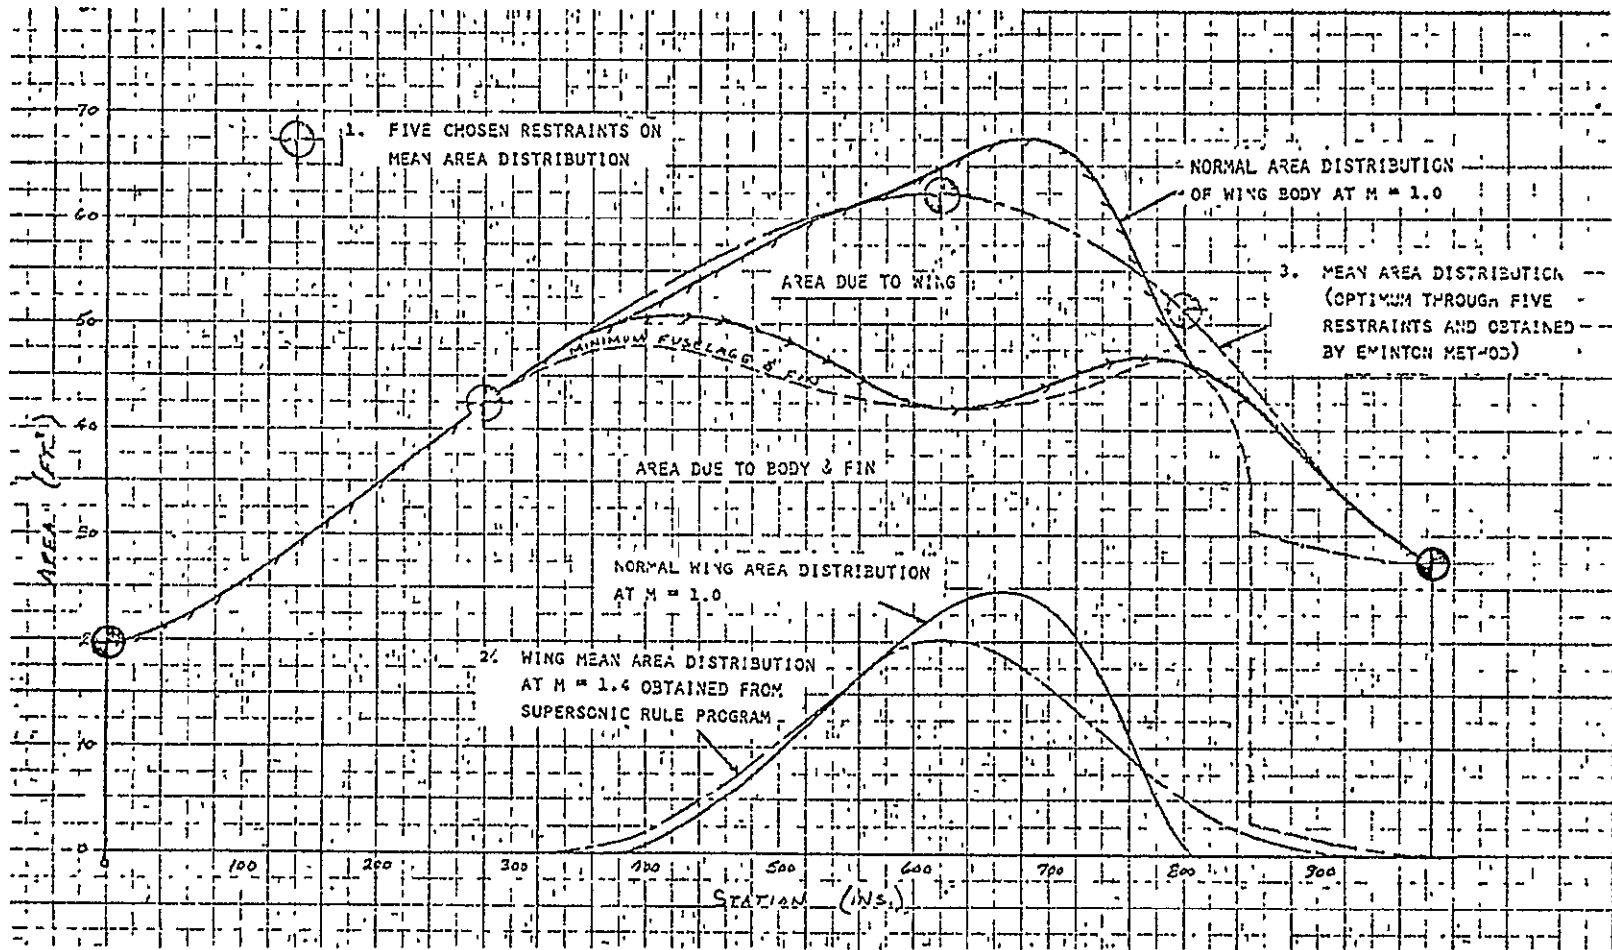 70
1. FIVE CHOSEN RESTRAINTS ON
MEAN AREA DISTRIBUTION
NORMAL AREA DISTRIBUTION
OF WING BODY AT M = 1.0
60
AREA DUE TO WING
3. MEAN AREA DISTRIBUTION
(OPTIMUM THROUGH FIVE
RESTRAINTS AND OBTAINED
BY EMINTON METHOD)
50
MINIMUM FUSELAGE & FIN
40
AREA (FT²)
AREA DUE TO BODY & FIN
30
NORMAL WING AREA DISTRIBUTION
AT M = 1.0
2. WING MEAN AREA DISTRIBUTION
AT M = 1.4 OBTAINED FROM
SUPERSONIC RULE PROGRAM
10
0
0 100 200 300 400 500 600 700 800 900
STATION (INS.)